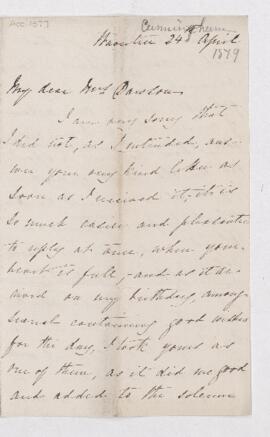 Acc 1377
Cunningham
24th April
1879
My dear Mrs
I am very sorry that
I did not, as I intended, ans-
wer your very kind letter as
soon as I received it; it is
so much easier and pleasanter
to reply at once, when your
heart is full, and as it ar-
rived on my birthday, among
several containing good wishes
for the day, I took yours as
one of them, as it did me good
and added to the solemn